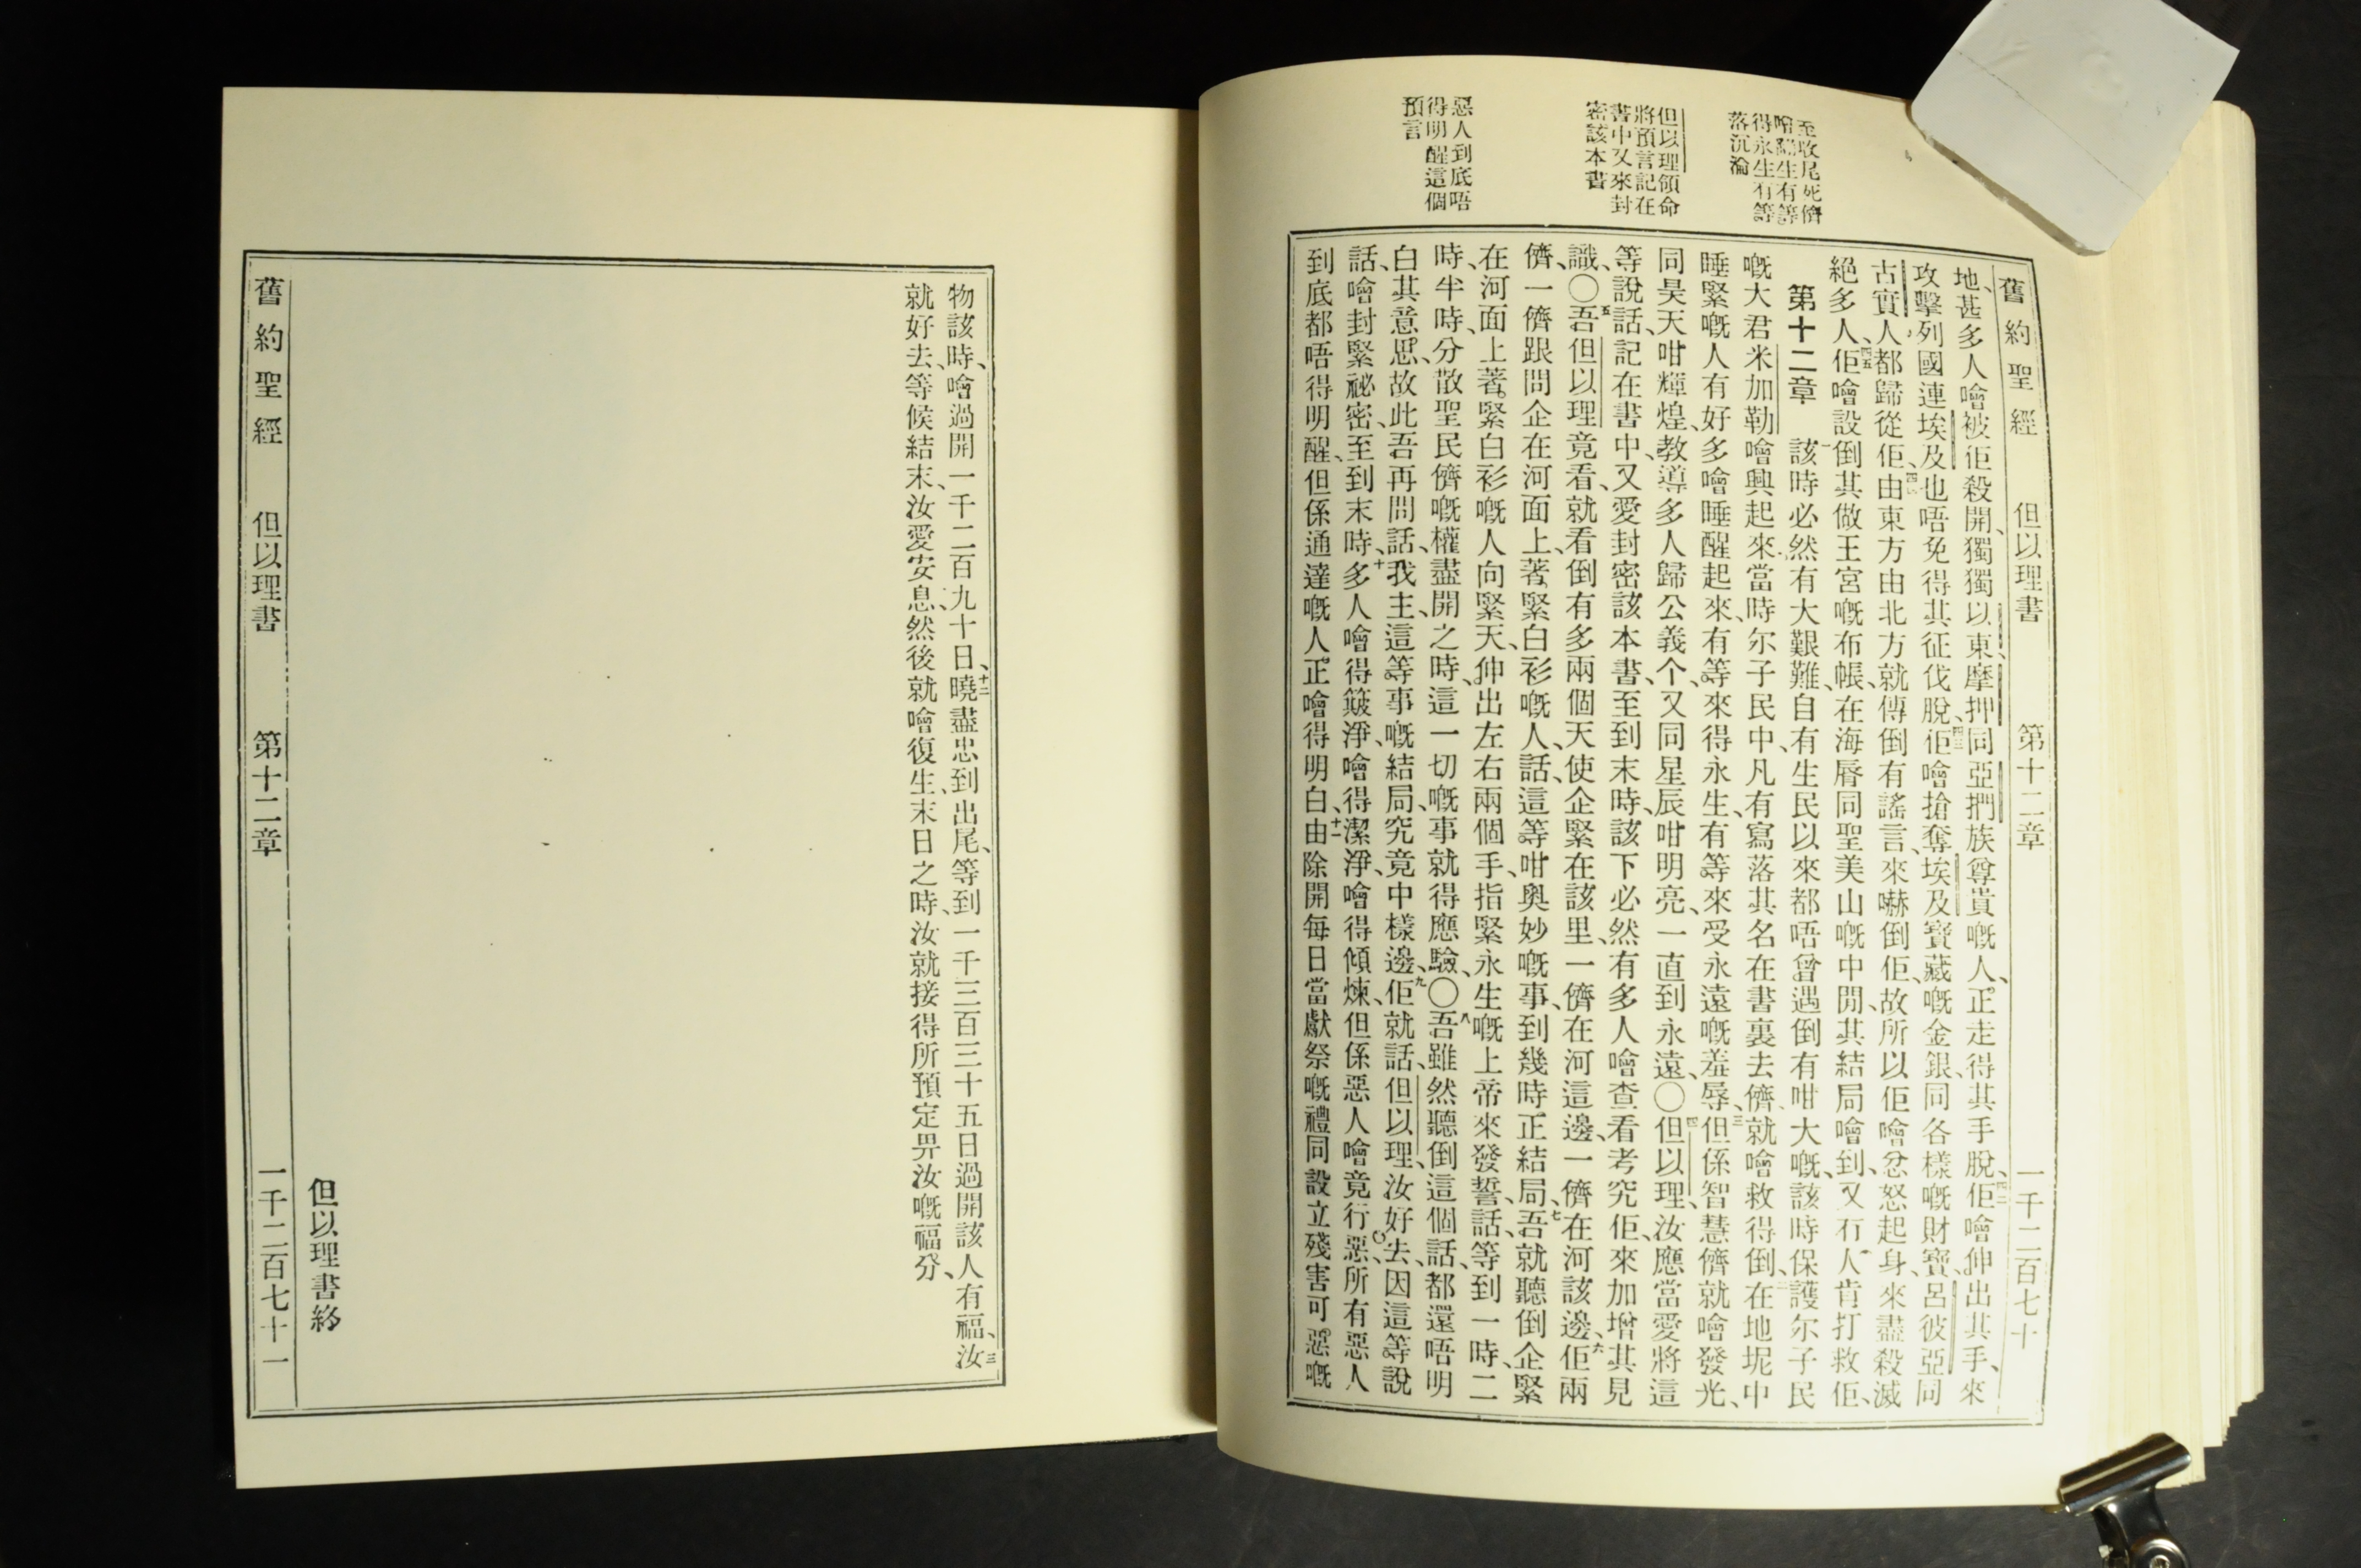 舊約聖經 但以理書 第十二章 一千二百七十
至收尾死儕
噲翻生有等
得永生有等
落沉淪
但以理領命
將預言記在
書中又來封
密該本書
惡人到底唔
得明醒這個
預言
地、甚多人噲被佢殺開、獨獨以東、摩押、同亞捫族尊貴嘅人、正走得其手脫、佢噲伸出其手、來
攻擊列國連埃及也唔免得其征伐脫、佢噲搶奪埃及寶藏嘅金銀、同各樣嘅財寶、呂彼亞同
古實人、都歸從佢、由東方由北方、就傳倒有謠言、來嚇倒佢、故所以佢噲忿怒起身、來盡殺滅
絕多人、佢噲設倒其做王宮嘅布帳、在海脣同聖美山嘅中間、其結局噲到、又冇人肯打救佢、
第十二章 一該時必然有大艱難、自有生民以來都唔曾遇倒有咁大嘅、該時保護尔子民
嘅大君米加勒噲興起來、當時尔子民中、凡有寫落其名在書裏去儕、就噲救得倒、二在地坭中
睡緊嘅人有好多噲睡醒起來、有等來得永生、有等來受永遠嘅羞辱、三但係智慧儕就噲發光、
同昊天咁輝煌、教導多人歸公義个、又同星辰咁明亮、一直到永遠〇四但以理、汝應當愛將這
等說話、記在書中、又愛封密該本書、至到末時、該下必然有多人噲查看考究佢、來加增其見
識、〇五吾但以理竟看、就看倒有多兩個天使企緊在該里、一儕在河這邊、一儕在河該邊、六佢兩
儕、一儕跟問企在河面上、著緊白衫嘅人、話、這等咁奧妙嘅事、到幾時正結局、七吾就聽倒企緊
在河面上著緊白衫嘅人向緊天、伸出左右兩個手、指緊永生嘅上帝來發誓、話、等到一時、二
時、半時、分散聖民儕嘅權盡開之時、這一切嘅事就得應驗、〇八吾雖然聽倒這個話、都還唔明
白其意思、故此吾再問話、我主、這等事嘅結局、究竟中樣邊、九佢就話、但以理、汝好去、因這等說
話、噲封緊祕密、至到末時、十多人噲得簸淨、噲得潔淨、噲得傾煉、但係惡人噲竟行惡、所有惡人
到底都唔得明醒、但係通達嘅人、正噲得明白、十一由除開每日當獻祭嘅禮同設立殘害可惡嘅
物該時、噲過開一千二百九十日、十二曉盡忠到出尾、等到一千三百三十五日過開該人有福、十三汝
就好去、等候結末、汝愛安息、然後就噲復生、末日之時、汝就接得所預定畀汝嘅福分、
但以理書終
舊約聖經 但以理書 第十二章 一千二百七十一